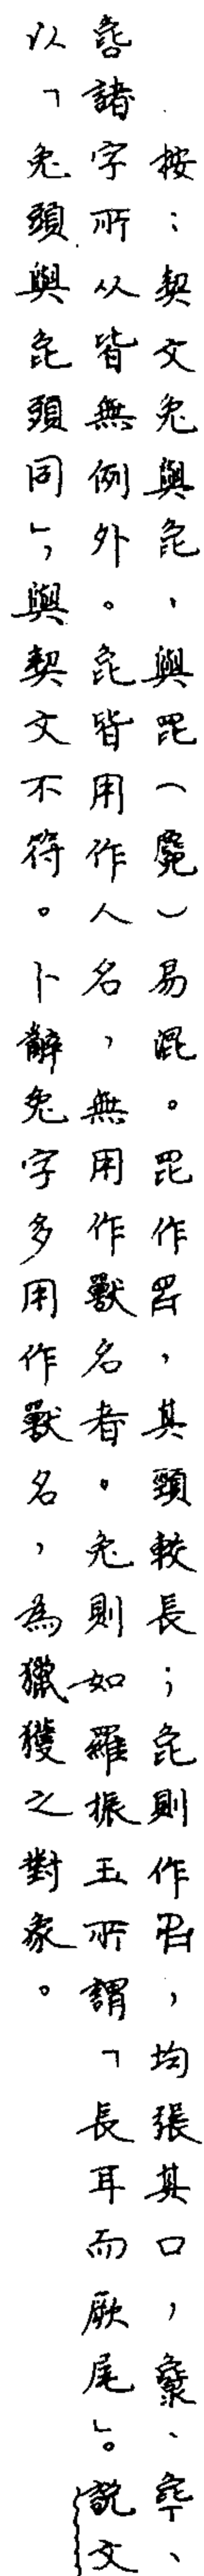 按：契文兔與㲋、與㲋（麑）易混。㲋作，其頸較長；㲋則作，均張其口，
諸字所从皆無例外。㲋皆用作人名，無用作獸名者。兔則如羅振玉所謂「長耳而厥尾」。說文
以「兔頭與㲋頭同」，與契文不符。卜辭兔字多用作獸名，為獵獲之對象。